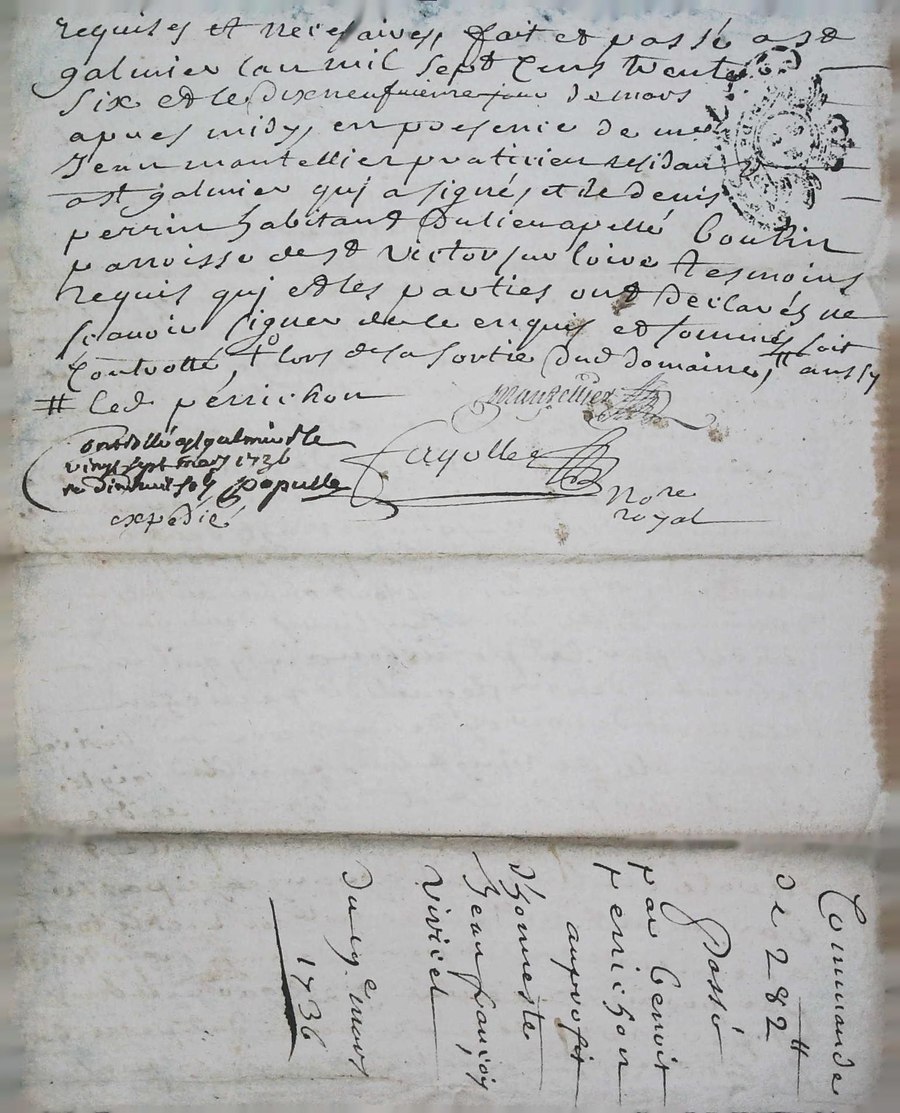 requises et necesaires, fait et passé a st
galmier lan mil sept cens trente
six et le dixneufvieme jour de mars
apres midy, en presence de me
Jean mantellier praticien residant
a st galmier qui a signé, et de denis
perrin habitant du lieu apellé boutin
parroisse de st victor sur loire tesmoins
requis qui et les parties ont declarés ne
scavoir signer de ce enquis et sommés soit
controllé, † lors de sa sortie dud domaine, # aussy
# led perrichon
Mantellier
controllé a st galmier le
vingt sept mars 1736
Fayolle
populle
expedié
Nore
royal
Commande
de 282 #
Passé
par benoit
perrichon
au profit
dhonneste
Jean françois
Du 19e mars
1736